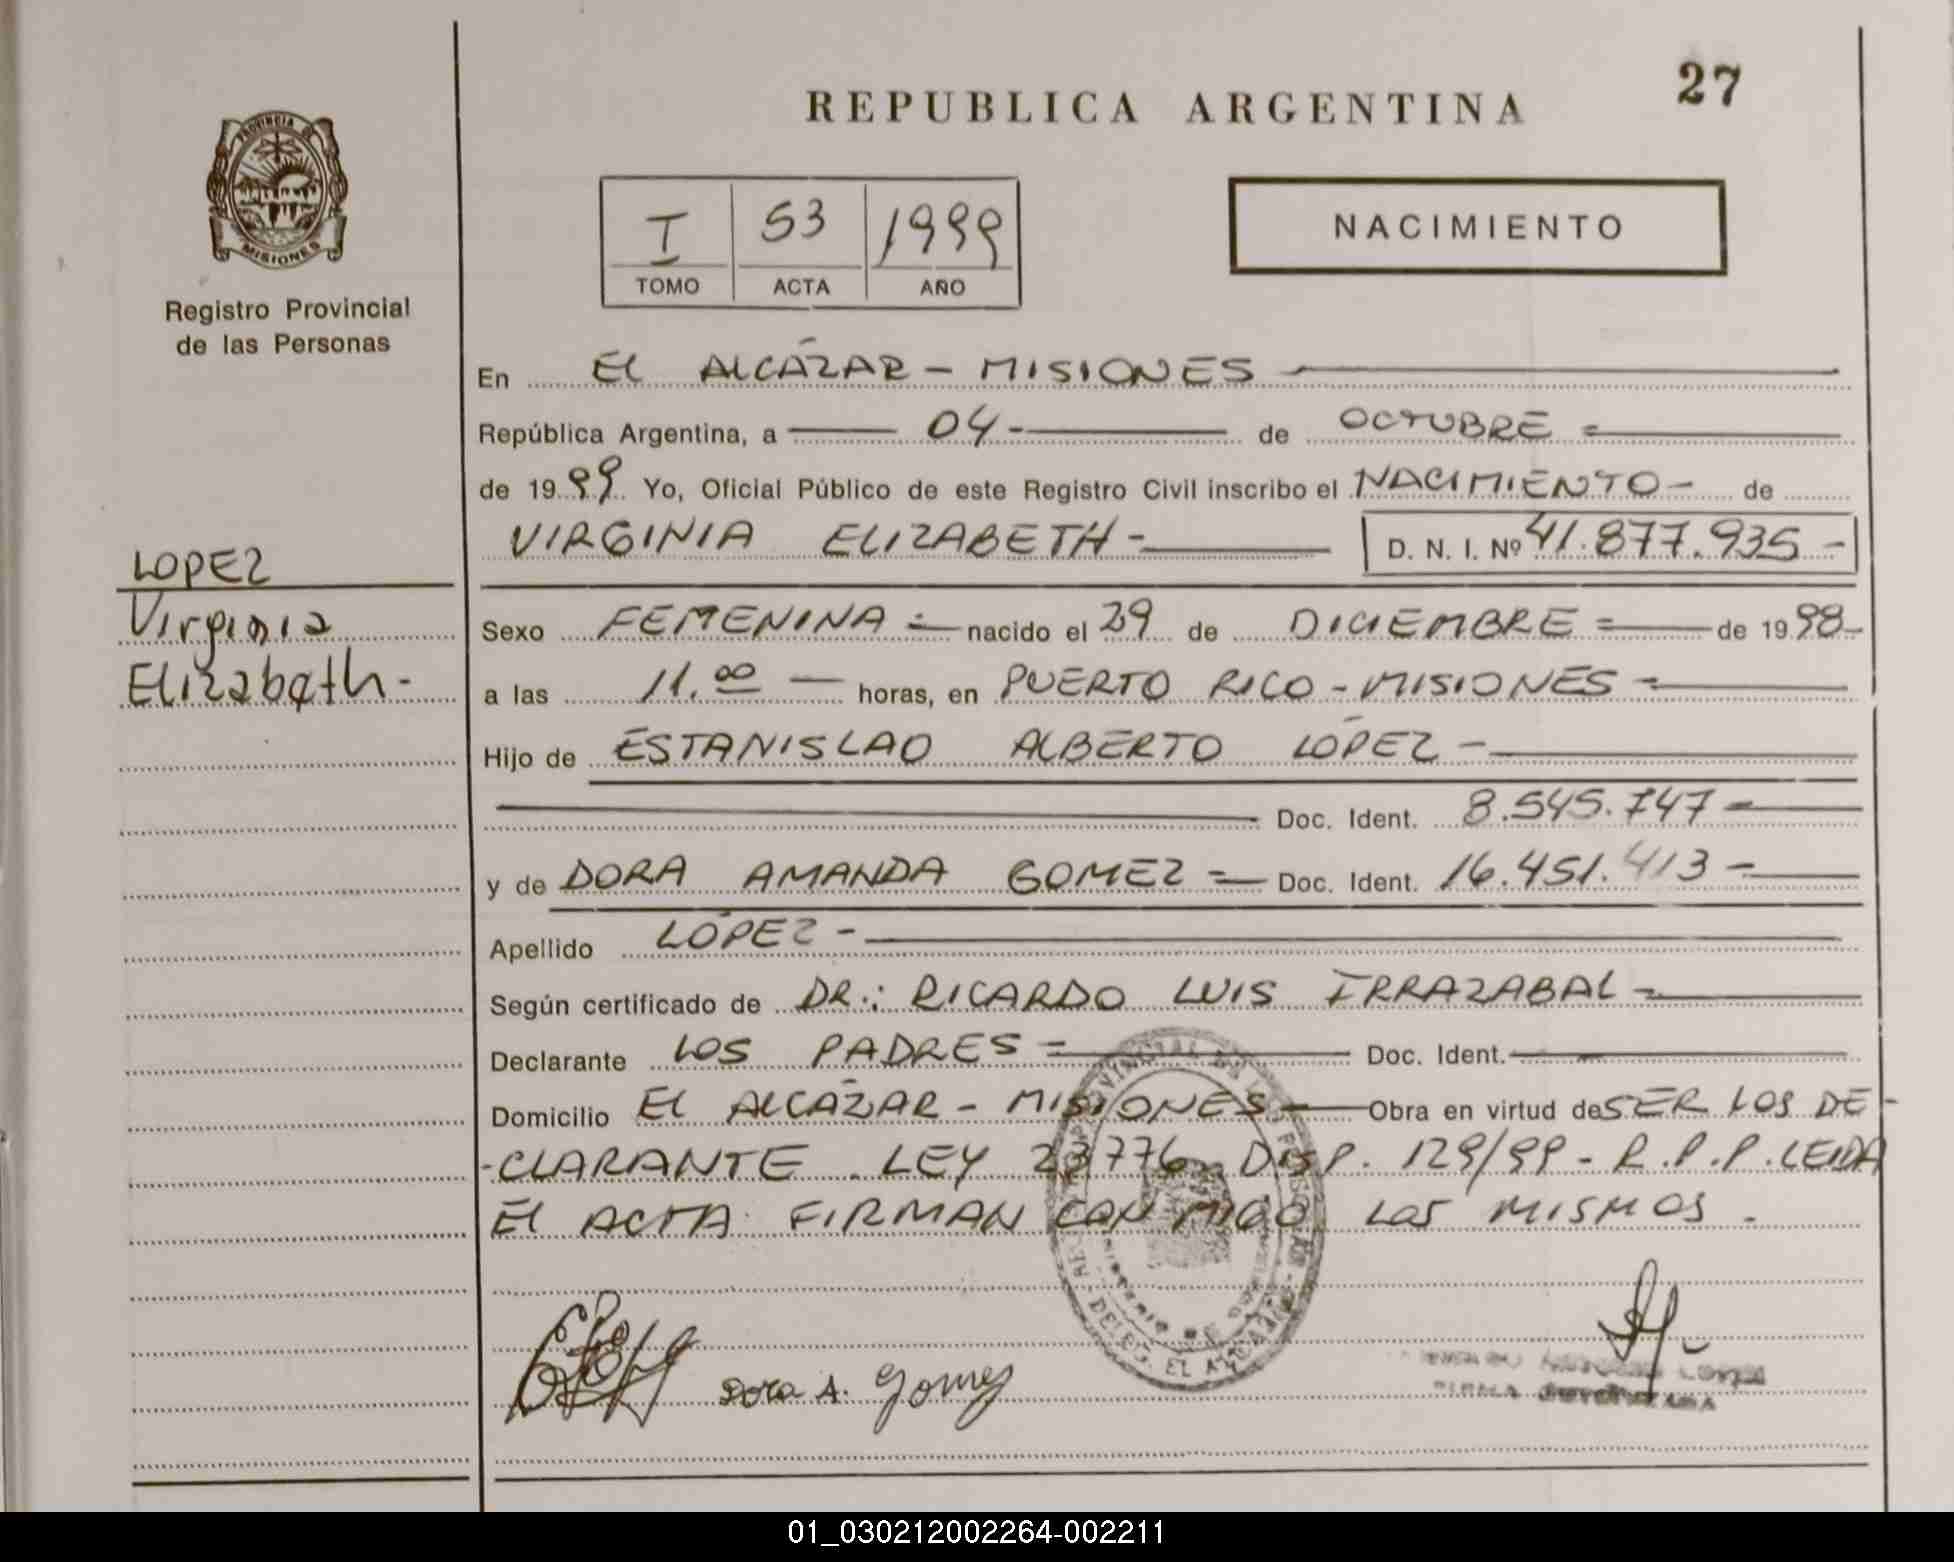 27
REPUBLICA ARGENTINA
PROVINCIA DE
MISIONES
Registro Provincial
de las Personas
I 53 1999
TOMO ACTA AÑO
NACIMIENTO
En EL ALCÁZAR - MISIONES
República Argentina, a 04 - de OCTUBRE =
de 1999 Yo, Oficial Público de este Registro Civil inscribo el NACIMIENTO - de
VIRGINIA ELIZABETH - D. N. I. Nº 41.877.935 -
LOPEZ
Virginia
Elizabeth -
Sexo FEMENINA = nacido el 29 de DICIEMBRE = de 1998 -
a las 11.00 — horas, en PUERTO RICO - MISIONES =
Hijo de ESTANISLAO ALBERTO LÓPEZ -
Doc. Ident. 8.545.747 -
y de DORA AMANDA GOMEZ = Doc. Ident. 16.451.413 -
Apellido LÓPEZ -
Según certificado de DR.: RICARDO LUIS IRRAZABAL -
Declarante LOS PADRES = Doc. Ident.
Domicilio EL ALCÁZAR - MISIONES - Obra en virtud de SER LOS DE -
- CLARANTE . LEY 23776 DISP. 129/99 - R.P.P. LEIDA
EL ACTA FIRMAN CONMIGO LOS MISMOS .
Dora A. Gomez
01_030212002264-002211